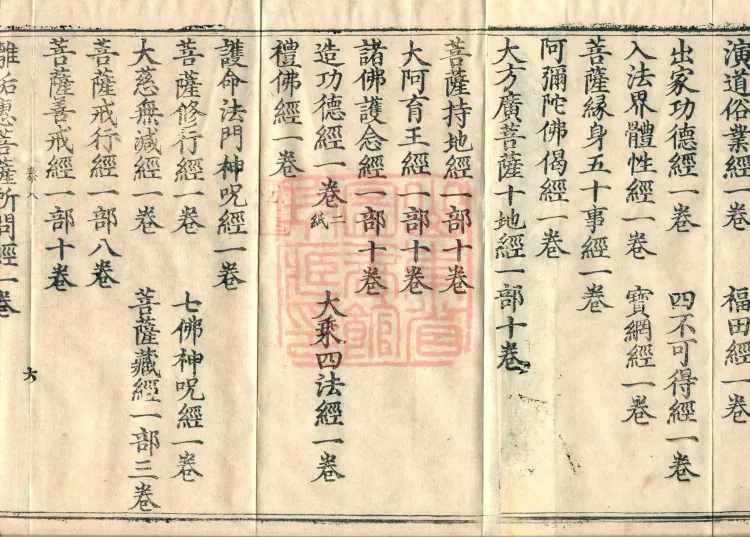 演道俗業經一卷　福田經一卷
出家功德經一卷　四不可得經一卷
入法界體性經一卷　寶網經一卷
菩薩緣身五十事經一卷
阿彌陀佛偈經一卷
大方廣菩薩十地經一部十卷
菩薩持地經一部十卷
大阿育王經一部十卷
諸佛護念經一部十卷
造功德經一卷二紙　大乘四法經一卷
禮佛經一卷
護命法門神呪經一卷
菩薩修行經一卷　七佛神呪經一卷
大慈無減經一卷　菩薩藏經一部三卷
菩薩戒行經一部八卷
菩薩善戒經一部十卷
卷八　六
離垢慧菩薩所問經一卷